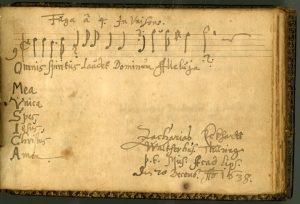 Fuga â 4. In Unisono.
Omnis spiritus Laudet Dominum Alleluja
Mea
Vnica
Spes
Iesus
Christus
Amen
Zacharias
Waltershus. Thuring
p.t. Illus. Acad Lips.
die 20 Decemb. Ao 1638.